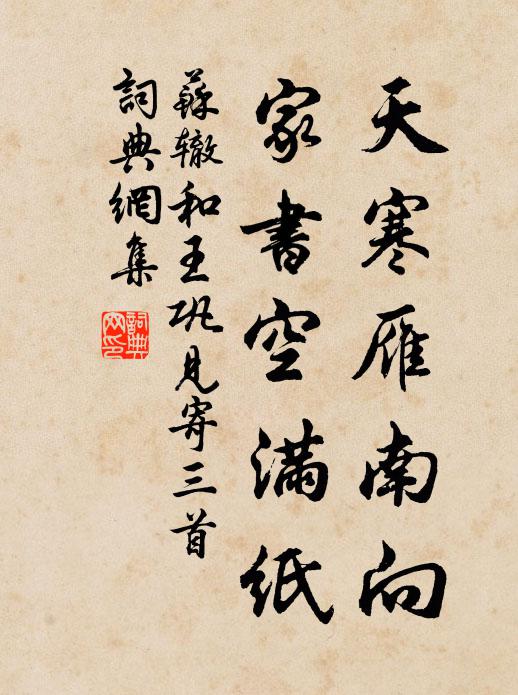 天寒雁南向
家書空滿紙
蘇轍和王巩見寄三首
詞典網集
詞典
网印